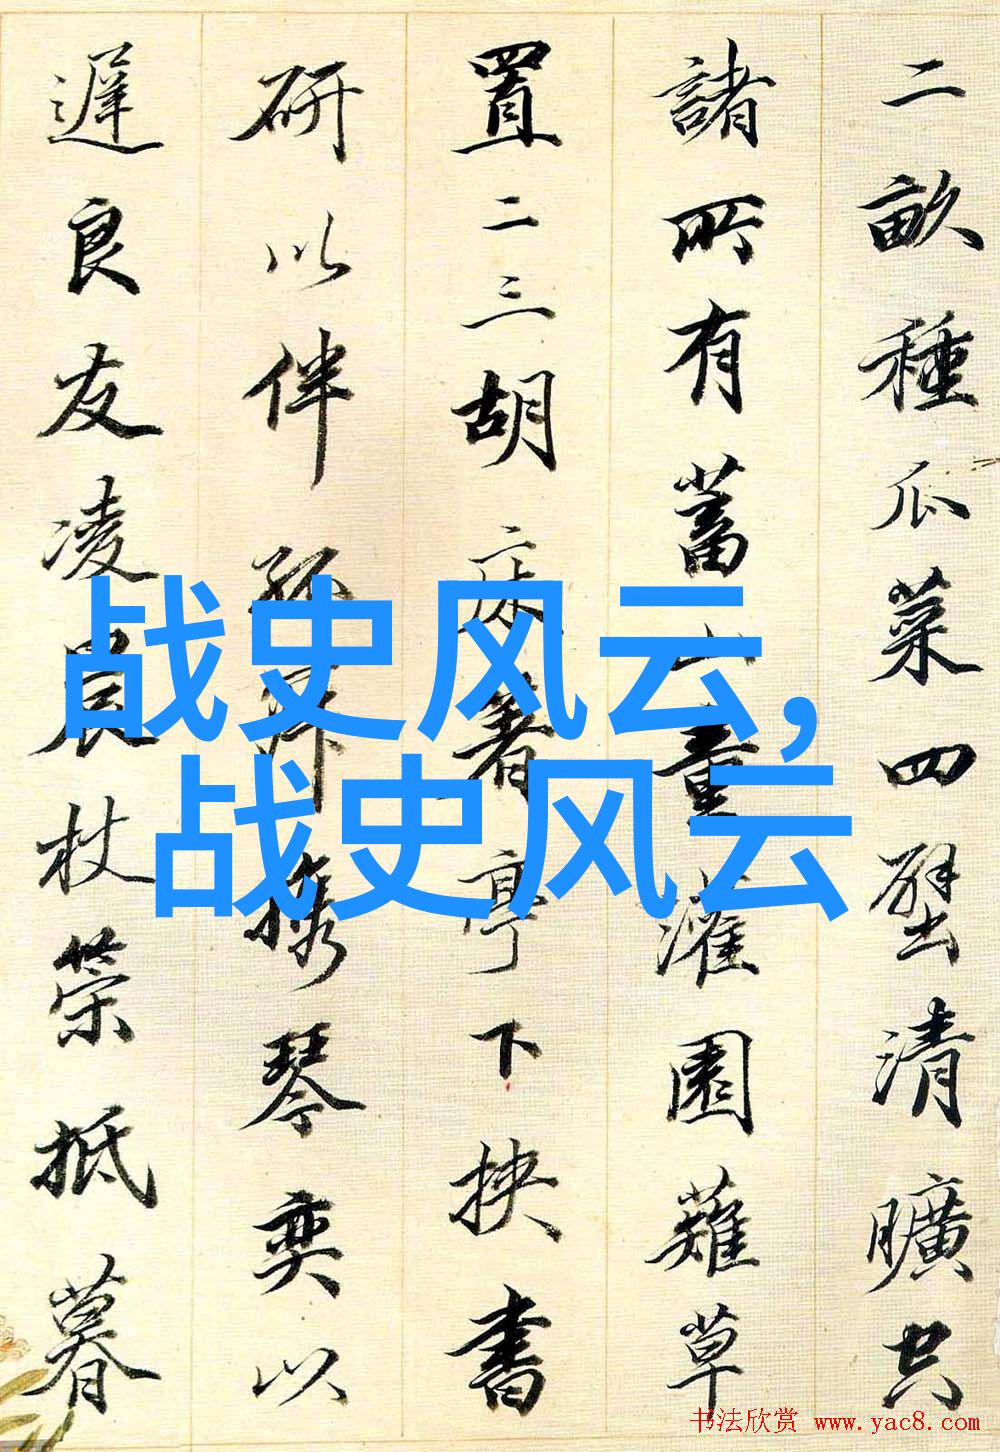 二畝種瓜菜四壁清曠共
諸所有蓄一童灌園薙草
置二三胡床著亭下挾書
研以伴孤寂攜琴奕以
遲良友凌晨杖策抵暮
战史风云,
战史风云
书法欣赏 www.yac8.com